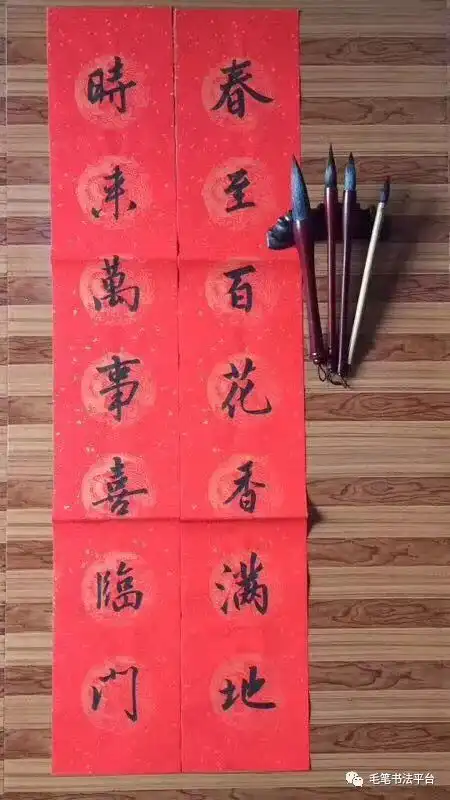 春至百花香满地
時来萬事喜臨门
毛笔书法平台